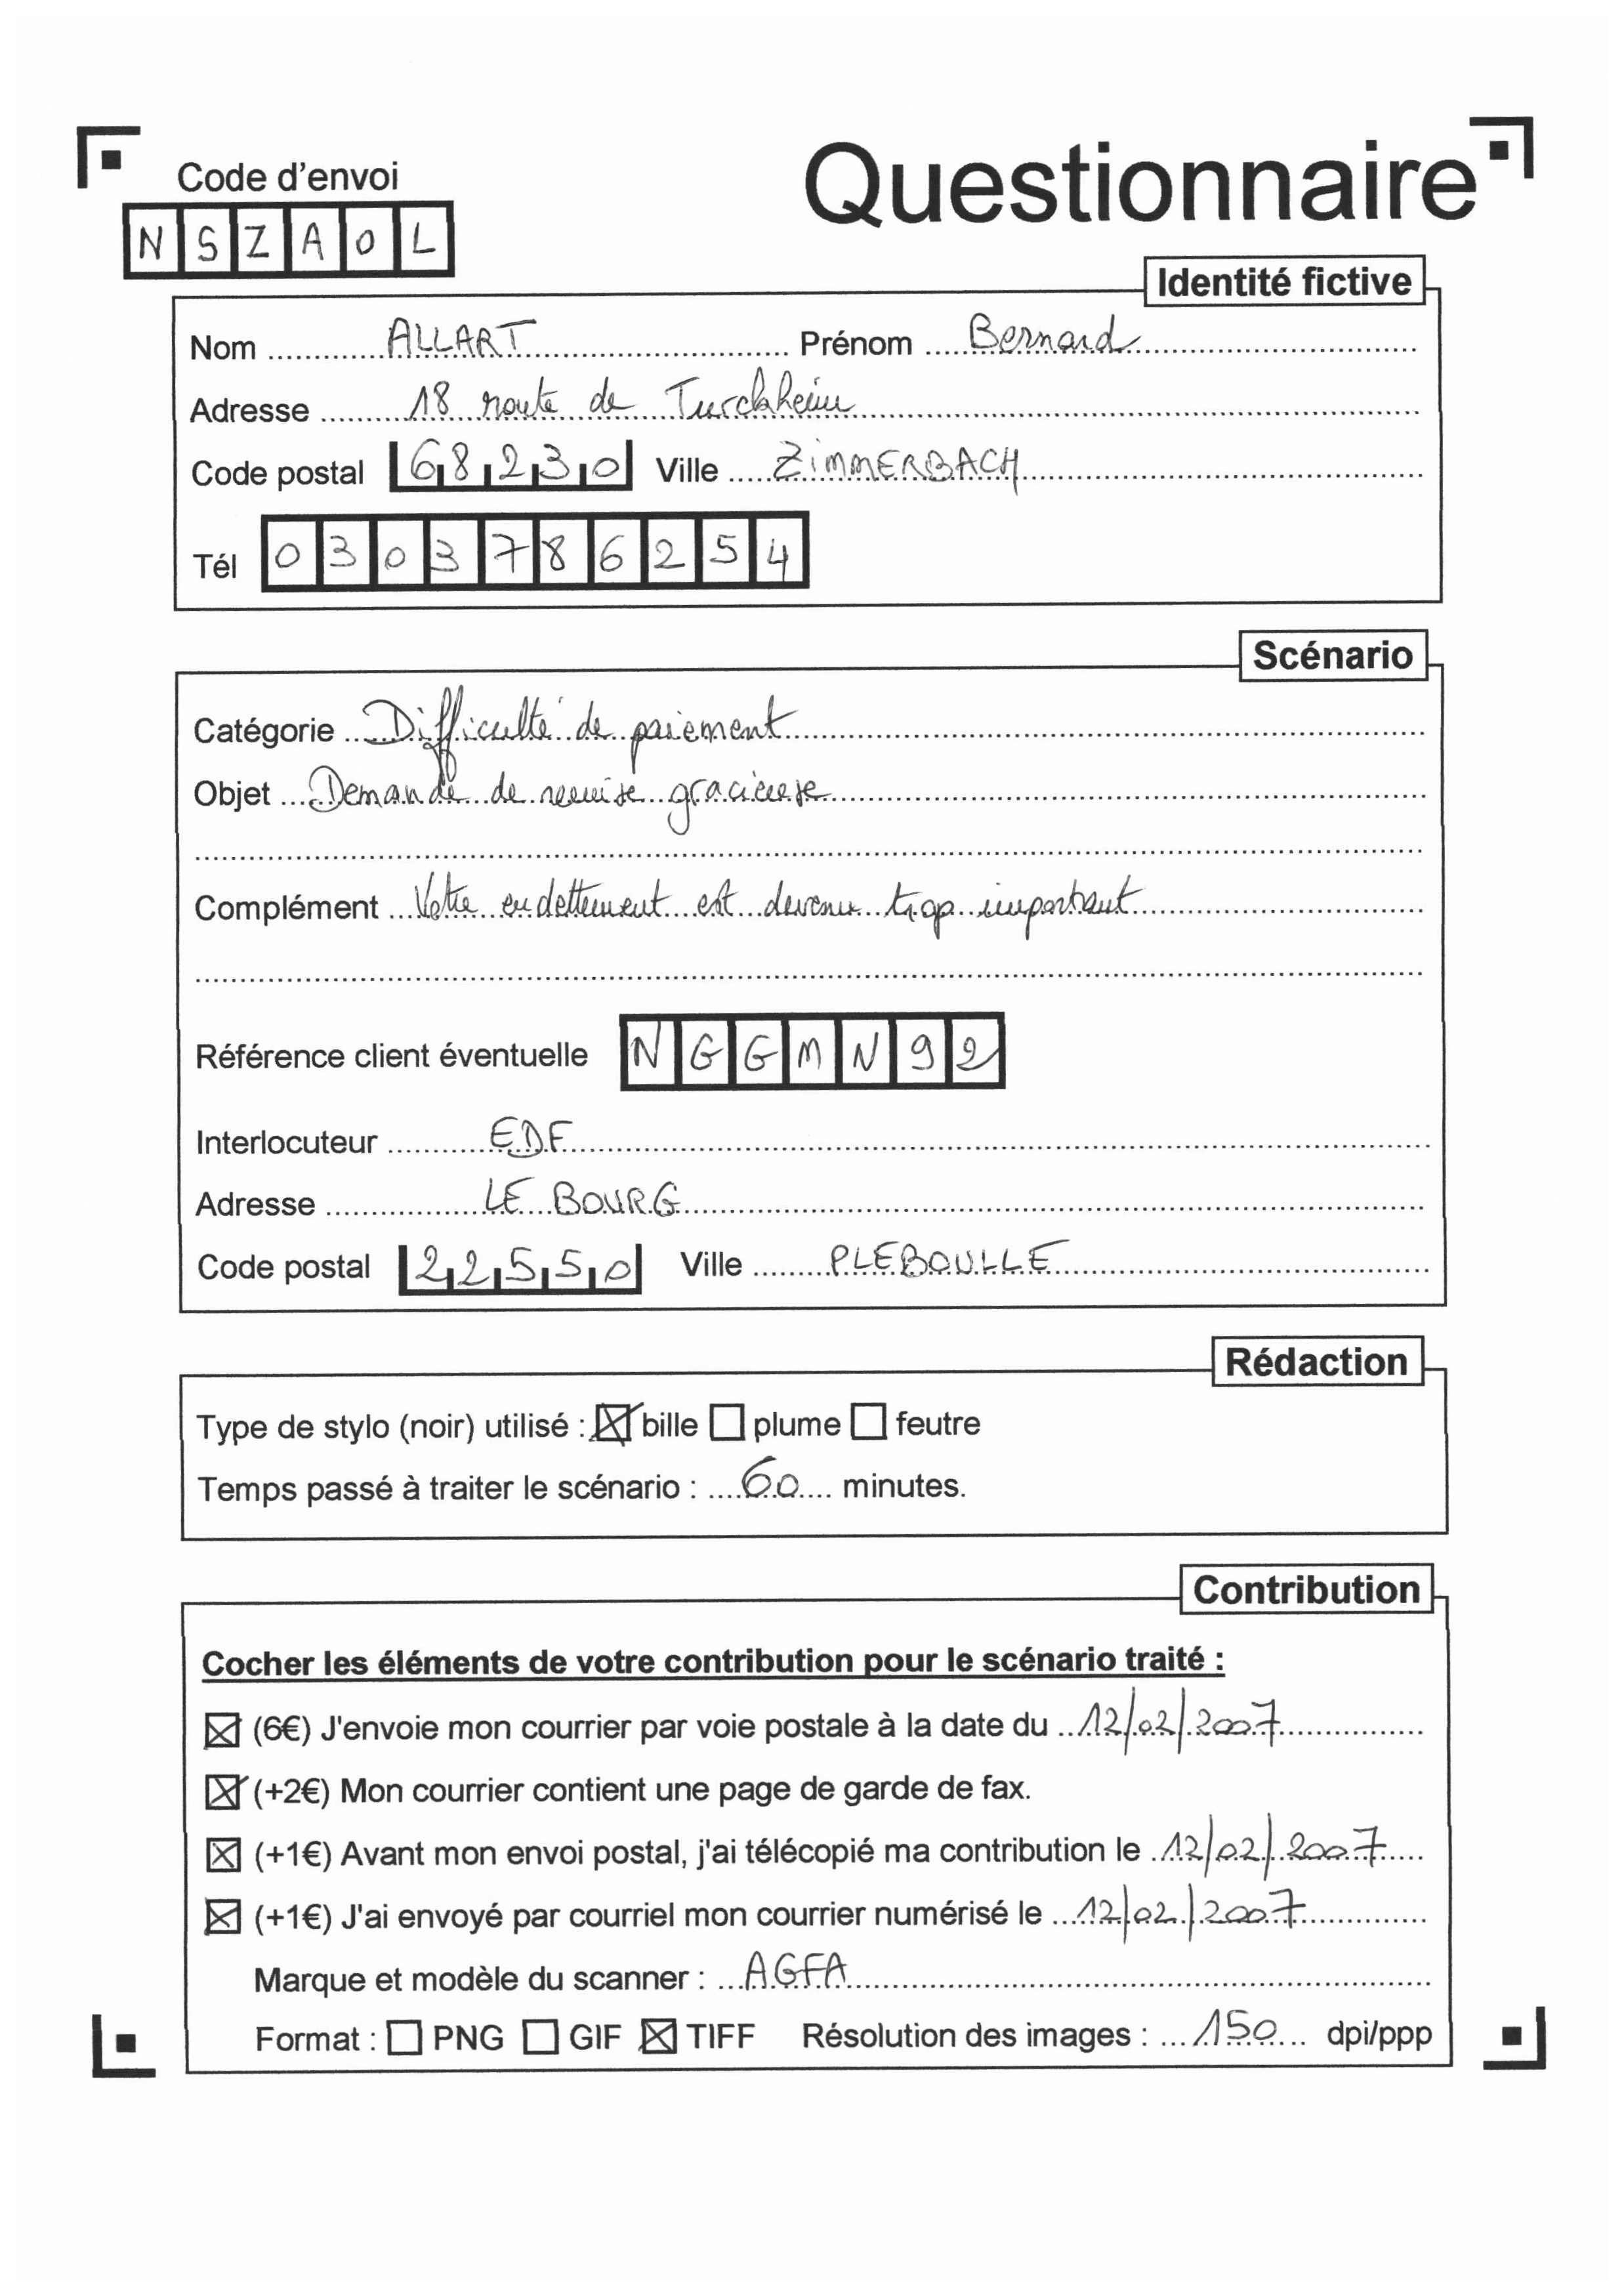 Code d'envoi
Questionnaire
N S Z A O L
Identité fictive
Nom ALLART Prénom Bernard
Adresse 18 route de Turckheim
Code postal 68230 Ville ZIMMERBACH
Tél 0303786254
Scénario
Catégorie Difficulté de paiement
Objet Demande de remise gracieuse
Complément Votre endettement est devenu trop important
Référence client éventuelle NGGMN92
Interlocuteur EDF
Adresse LE BOURG
Code postal 22550 Ville PLEBOULLE
Rédaction
Type de stylo (noir) utilisé : ☒ bille ☐ plume ☐ feutre
Temps passé à traiter le scénario : 60 minutes.
Contribution
Cocher les éléments de votre contribution pour le scénario traité :
☒ (6€) J'envoie mon courrier par voie postale à la date du 12/02/2007
☒ (+2€) Mon courrier contient une page de garde de fax.
☒ (+1€) Avant mon envoi postal, j'ai télécopié ma contribution le 12/02/2007
☒ (+1€) J'ai envoyé par courriel mon courrier numérisé le 12/02/2007
Marque et modèle du scanner : AGFA
Format : ☐ PNG ☐ GIF ☒ TIFF Résolution des images : 150 dpi/ppp